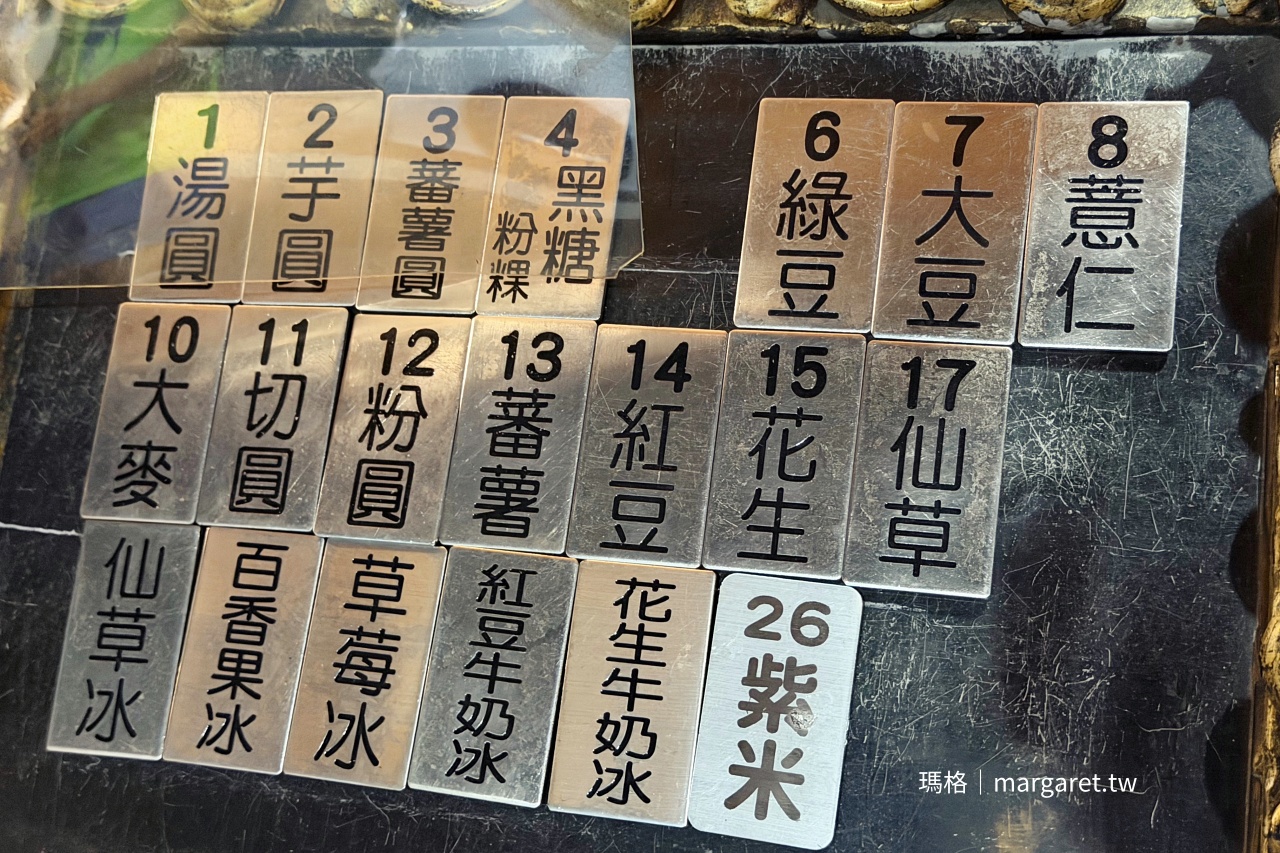 1 湯圓
2 芋圓
3 蕃薯圓
4 黑糖粉粿
6 綠豆
7 大豆
8 薏仁
10 大麥
11 切圓
12 粉圓
13 蕃薯
14 紅豆
15 花生
17 仙草
仙草冰
百香果冰
草莓冰
紅豆牛奶冰
花生牛奶冰
26 紫米
瑪格|margaret.tw